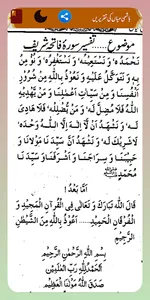 ہاشمی میاں کی تقریریں
موضوع ..... تفسیر سورۂ فاتحہ شریف
نَحْمَدُهٗ وَ نَسْتَعِيْنُهٗ وَ نَسْتَغْفِرُهٗ وَ نُؤْمِنُ
بِهٖ وَ نَتَوَكَّلُ عَلَيْهِ وَ نَعُوْذُ بِاللّٰهِ مِنْ شُرُوْرِ
اَنْفُسِنَا وَ مِنْ سَيِّاٰتِ اَعْمَالِنَا مَنْ يَّهْدِهِ
اللّٰهُ فَلَا مُضِلَّ لَهٗ وَ مَنْ يُّضْلِلْهُ فَلَا هَادِيَ
لَهٗ وَ نَشْهَدُ اَنْ لَّا اِلٰهَ اِلَّا اللّٰهُ وَحْدَهٗ
لَا شَرِيْكَ لَهٗ وَ نَشْهَدُ اَنَّ سَيِّدَنَا وَ مَوْلَانَا وَ
حَبِيْبَنَا وَ سِرَاجَنَا وَ سَيِّدَنَا
مُحَمَّدٍ
اَمَّا بَعْدُ!
قَالَ اللّٰهُ تَبَارَكَ وَ تَعَالٰى فِي الْقُرْاٰنِ الْمَجِيْدِ وَ
الْفُرْقَانِ الْحَمِيْدِ ..... اَعُوْذُ بِاللّٰهِ مِنَ الشَّيْطٰنِ
الرَّجِيْمِ
بِسْمِ اللّٰهِ الرَّحْمٰنِ الرَّحِيْمِ
اَلْحَمْدُ لِلّٰهِ رَبِّ الْعٰلَمِيْنَ
صَدَقَ اللّٰهُ مَوْلٰنَا الْعَظِيْمُ